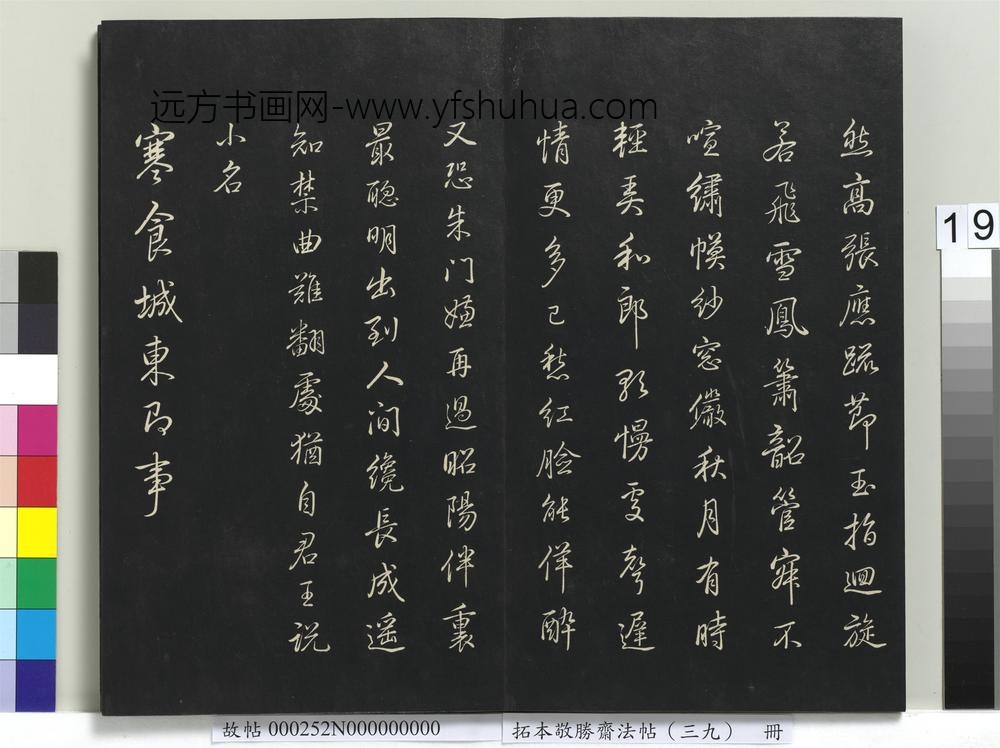 远方书画网-www.yfshuhua.com
然高張應疏節玉指迴旋
若飛雪鳳簫韶管寂不
喧繡幙紗窓儼秋月有時
輕弄和郎歌慢處聲遲
情更多已愁紅臉能佯醉
又恐朱门嫌再過昭陽伴裏
最聰明出到人间纔長成遥
知禁曲難翻處猶自君王说
小名
寒食城東即事
19
故帖 000252N000000000
拓本敬勝齋法帖（三九） 冊